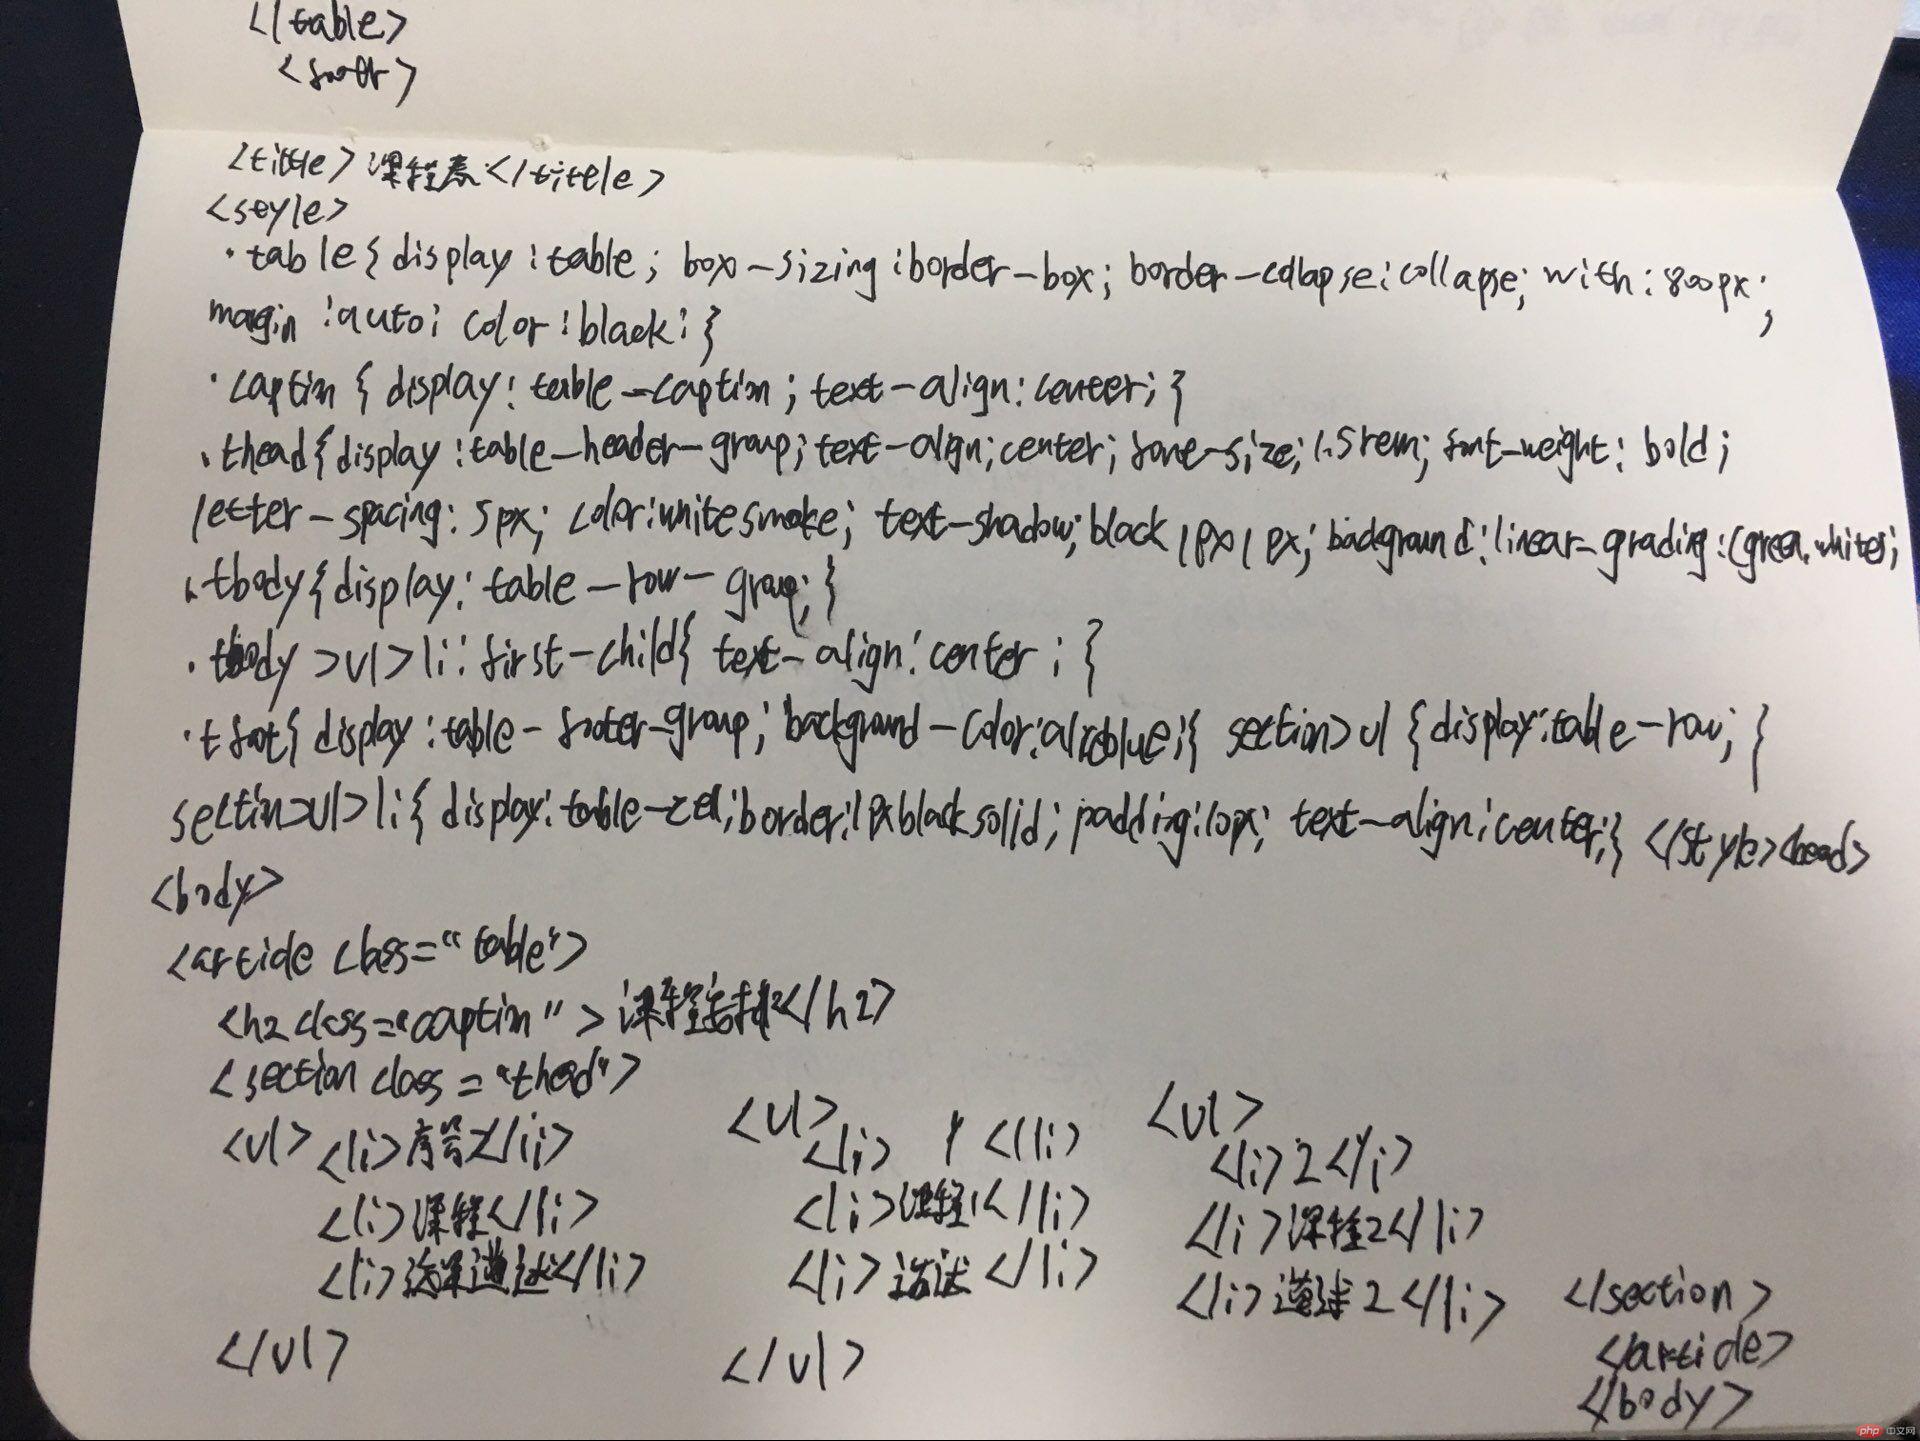 </table>
<footr>
<title>课程表</tittle>
<style>
.table{display:table; box-sizing:border-box; border-collapse:collapse; with:800px;
margin:auto; color:black;}
.caption{display:table-caption; text-align:center;}
.thead{display:table-header-group; text-align;center; font-size;1.5rem; font-weight:bold;
letter-spacing:5px; color:whitesmoke; text-shadow;black 1px 1px; background:linear-grading:(green,white;
.tbody{display:table-row-group;}
.tbody>ul>li:first-child{text-align:center;}
.tfoot{display:table-footer-group; background-color:aliceblue;} section>ul{display:table-row;}
section>ul>li{display:table-cell; border:1px black solid; padding:10px; text-align:center;} </style><head>
<body>
<article class="table">
<h2 class="caption">课程安排</h2>
<section class="thead">
<ul> <li>序号</li>
<li>课程</li>
</li>
</ul>
<ul>
<li> 1 </li>
<li>课程1</li>
<li> </li>
</ul>
<ul>
<li>2</li>
<li>课程2</li>
<li> 2</li>
</section>
</article>
</body>
php中文网